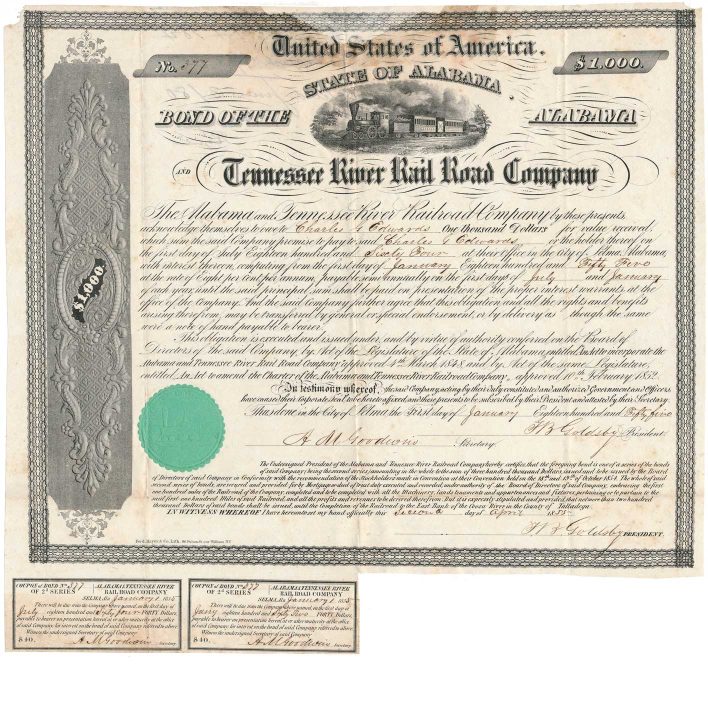 United States of America.
No. 377
$1,000.
STATE OF ALABAMA
BOND OF THE
ALABAMA
AND
Tennessee River Rail Road Company
The Alabama and Tennessee River Railroad Company by these presents
acknowledge themselves to owe to Charles G Edwards One thousand Dollars for value received;
which sum the said Company promise to pay to said Charles G Edwards or the holder thereof on
the first day of July Eighteen hundred and Sixty Four at their office in the City of Selma, Alabama,
with interest thereon, computing from the first day of January Eighteen hundred and Fifty Five
at the rate of Eight per Cent per annum, payable semi annually on the first days of July and January
of each year until the said principal sum shall be paid on presentation of the proper interest warrants at the
office of the Company. And the said Company further agree that this obligation and all the rights and benefits
arising therefrom, may be transferred by general or special endorsement, or by delivery as though the same
were a note of hand payable to bearer.
This obligation is executed and issued under, and by virtue of authority conferred on the Board of
Directors of the said Company, by Act of the Legislature of the State of Alabama, entitled An Act to incorporate the
Alabama and Tennessee River Rail Road Company approved 4th March 1848 and by Act of the same Legislature
entitled An Act to amend the Charter of the Alabama and Tennessee River Railroad Company, approved February 1852
In testimony whereof, the said Company acting by their duly constituted and authorized Government and Officers
have caused their Corporate Seal to be hereto affixed and these presents to be subscribed by their President and attested by their Secretary.
Thus done in the City of Selma, the First day of January Eighteen hundred and Fifty Five
W B Goldsby President
A M Goodwin Secretary.
$1,000
The Undersigned President of the Alabama and Tennessee River Railroad Company hereby certifies, that the foregoing bond is one of a series of the bonds
of said Company; being the second series, amounting in the whole to the sum of three hundred thousand Dollars, issued and to be issued by the Board
of Directors of said Company in Conformity with the recommendation of the Stockholders made in Convention at their Convention held on the 18th and 19th of October 1854. The whole of said
series of bonds, are secured and provided for by Mortgage or deed of trust executed and recorded under authority of the Board of Directors of said Company, embracing the first
one hundred miles of the Railroad of the Company, completed and to be completed with all the Machinery, lands tenements and appurtenances and fixtures pertaining or to pertain to the
said first one hundred Miles of said Railroad, and all the profits and revenue to be derived therefrom. But it is expressly stipulated and provided that no more than two hundred
thousand Dollars of said bonds shall be issued, until the completion of the Railroad to the East Bank of the Coosa River in the County of Talladega
IN WITNESS WHEREOF I have hereunto set my hand officially this Second day of April 1855
W B Goldsby PRESIDENT.
COUPON of BOND No. 377
OF 2d SERIES
ALABAMA & TENNESSEE RIVER
RAIL ROAD COMPANY
SELMA, Ala January 1 1855
There will be due from the Company above named, on the first day of
July eighteen hundred and Sixty four FORTY Dollars
payable to bearer on presentation hereof at or after maturity at the office
of said Company for interest on the bond of said Company referred to above
Witness the undersigned Secretary of said Company
$40. A M Goodwin Secretary
COUPON of BOND No. 377
OF 2d SERIES
ALABAMA & TENNESSEE RIVER
RAIL ROAD COMPANY
SELMA, Ala January 1 1855
There will be due from the Company above named, on the first day of
Jany eighteen hundred and FORTY Dollars
payable to bearer on presentation hereof at or after maturity at the office
of said Company for interest on the bond of said Company referred to above
Witness the undersigned Secretary of said Company
$40. A M Goodwin Secretary